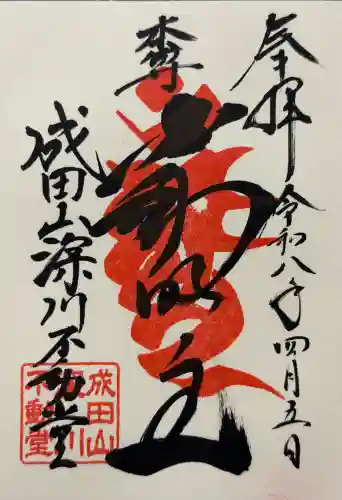 奉拝
令和八年四月五日
季
不動明王
成田山深川不動堂
成田山
深川
不動堂